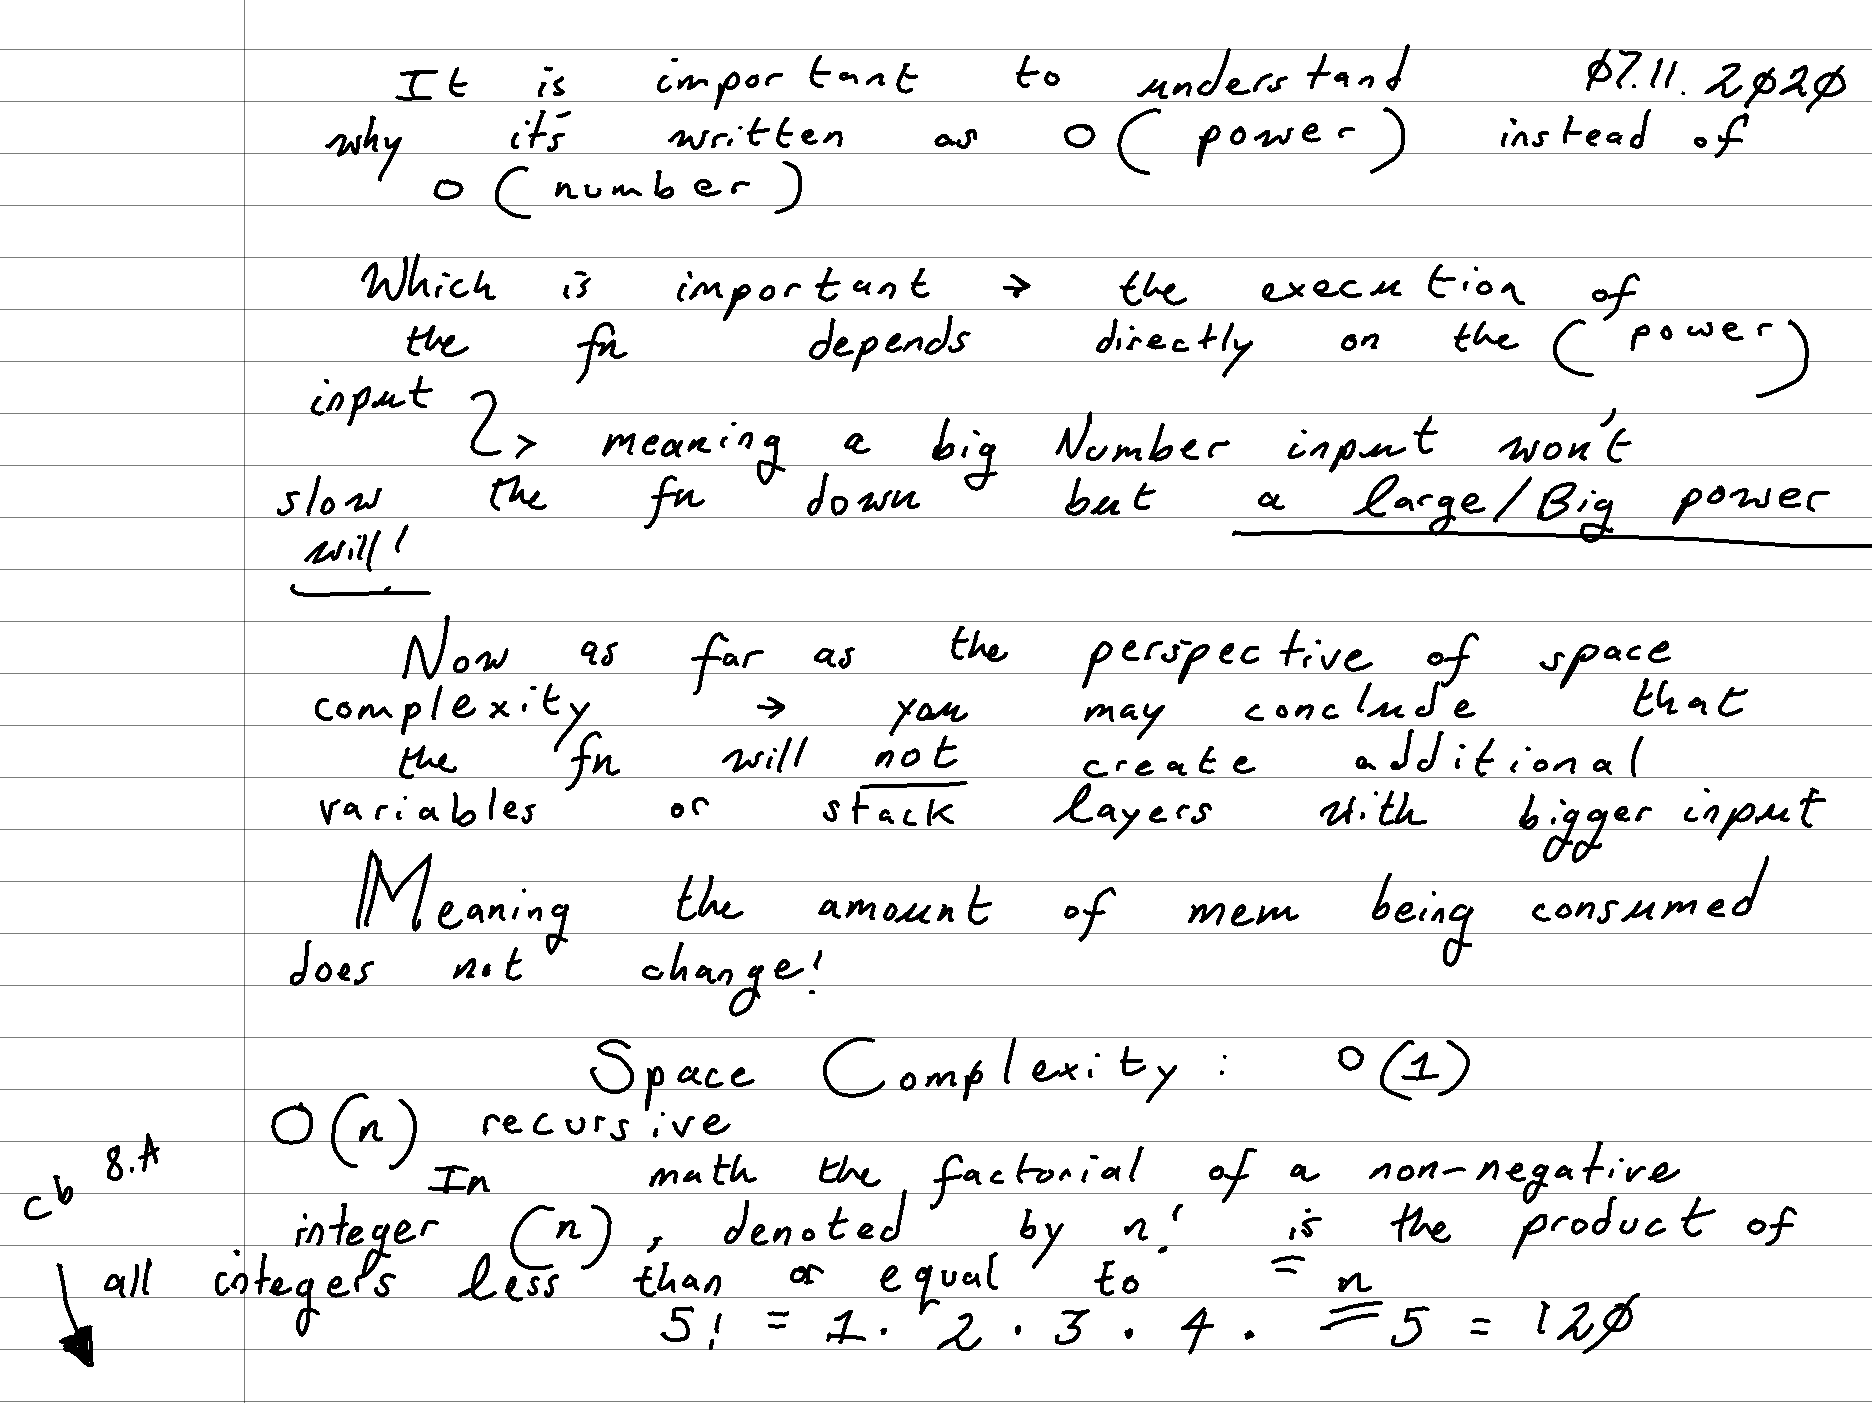 It is important to understand 07.11.2020
why it's written as O (power) instead of
O (number)
Which is important → the execution of
the fn depends directly on the (power)
input
> meaning a big Number input won't
slow the fn down but a large/Big power
will!
Now as far as the perspective of space
complexity → you may conclude that
the fn will not create additional
variables or stack layers with bigger input
Meaning the amount of mem being consumed
does not change!
Space Complexity : O(1)
O(n) recursive
cb 8.A
In math the factorial of a non-negative
integer (n), denoted by n! is the product of
all integers less than or equal to n
5! = 1 · 2 · 3 · 4 · 5 = 120